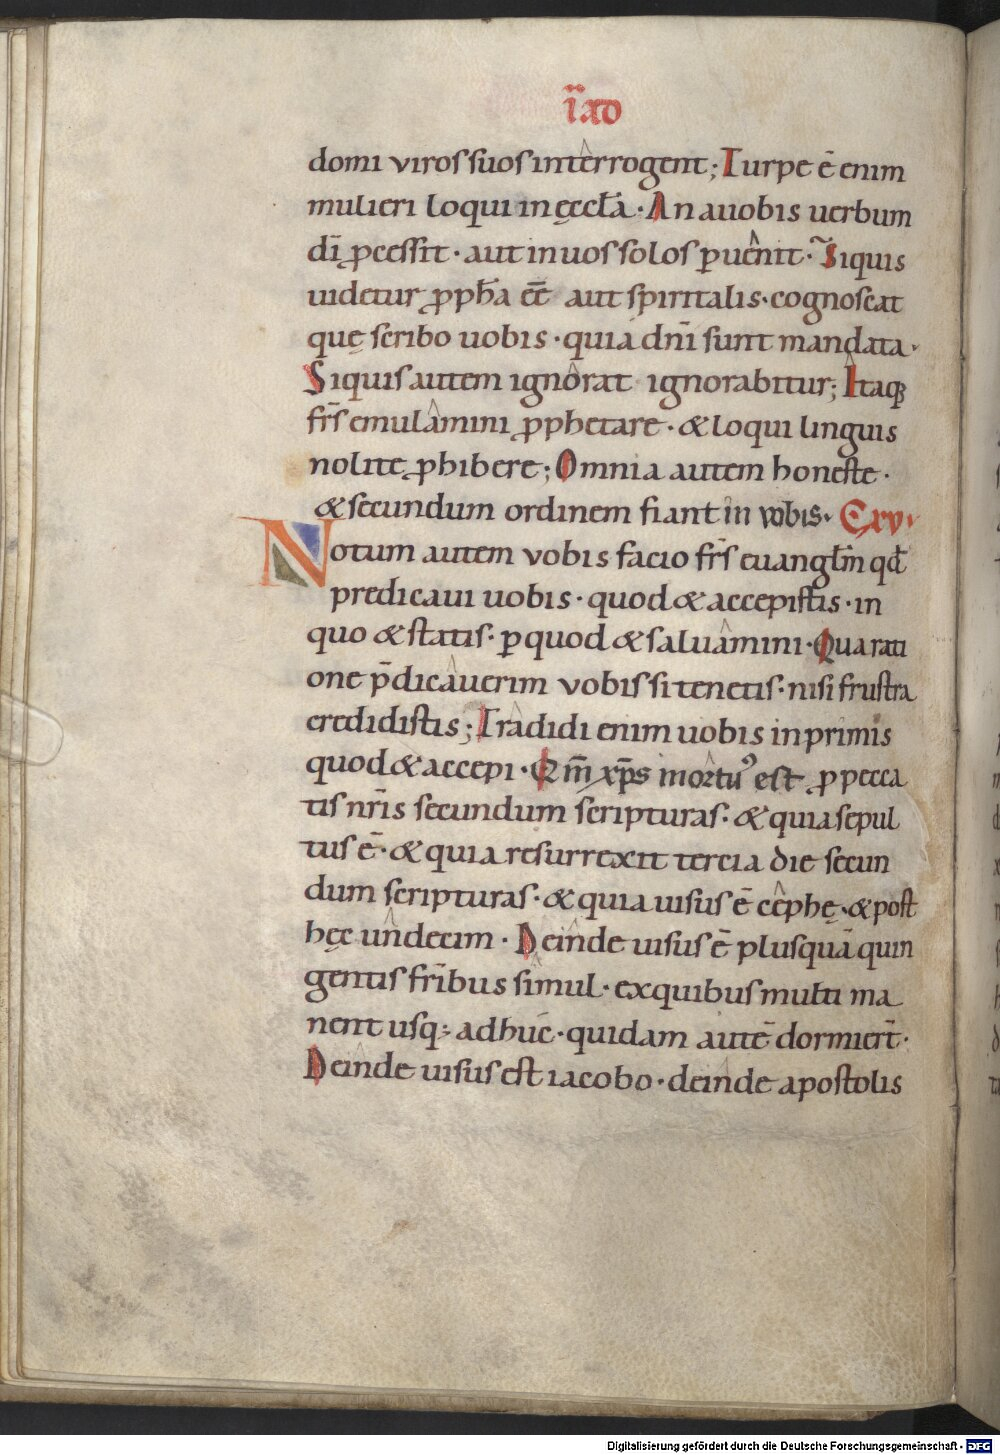 ïad
domi viros suos interrogent; Turpe ē enim
mulieri loqui in ęccƚa · An a uobis uerbum
dī ꝓcessit · aut in uos solos ꝑuenit · Siquis
uidetur ꝓph̄a ēē aut spiritalis · cognoscat
quę scribo uobis · quia dn̄i sunt mandata ·
Siquis autem ignorat ignorabitur; Itaqꝫ
fr̄s emulamini ꝓphetare · & loqui linguis
nolite ꝓhibere; Omnia autem honeste ·
& secundum ordinem fiant in vobis · C xv ·
Notum autem vobis facio fr̄s euangƚm̄ qđ
predicaui uobis · quod & accepistis · in
quo & statis · ꝑ quod & saluamini · Qua rati
one p̄dicauerim vobis si tenetis · nisi frustra
credidistis; Tradidi enim uobis in primis
quod & accepi · Qm̄ xp̄s mortuꝰ est ꝓ pecca
tis nr̄is secundum scripturas · & quia sepul
tus ē · & quia resurrexit tercia die secun
dum scripturas · & quia uisus ē cephę · & post
hęc undecim · Deinde uisus ē plusquā quin
gentis fr̄ibus simul · ex quibus multi ma
nent usqꝫ adhuc · quidam autē dormiert̄ ·
Deinde uisus est iacobo · deinde apostolis
Digitalisierung gefördert durch die Deutsche Forschungsgemeinschaft - DFG